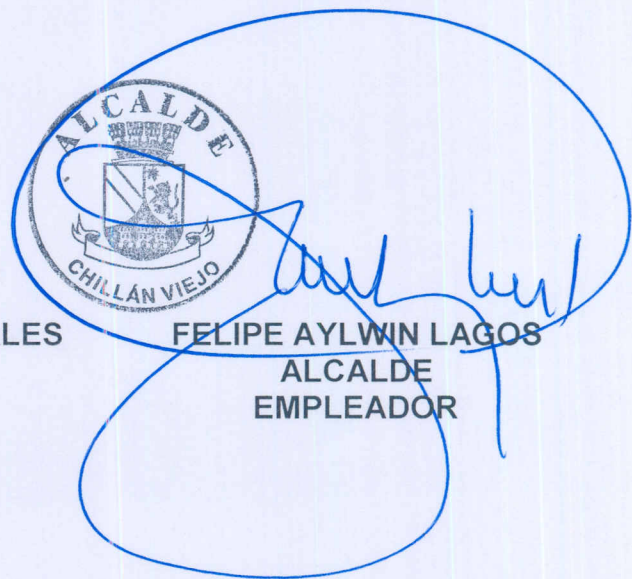 ALCALDE
CHILLÁN VIEJO
LES
FELIPE AYLWIN LAGOS
ALCALDE
EMPLEADOR